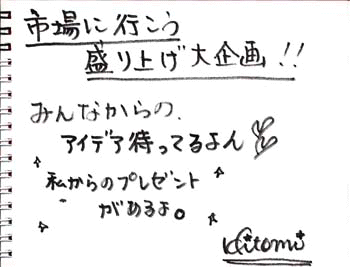 市場に行こう
盛り上げ大企画!!
みんなからの、
アイデア待ってるよん
私からのプレゼント
があるよ。
Hitomi